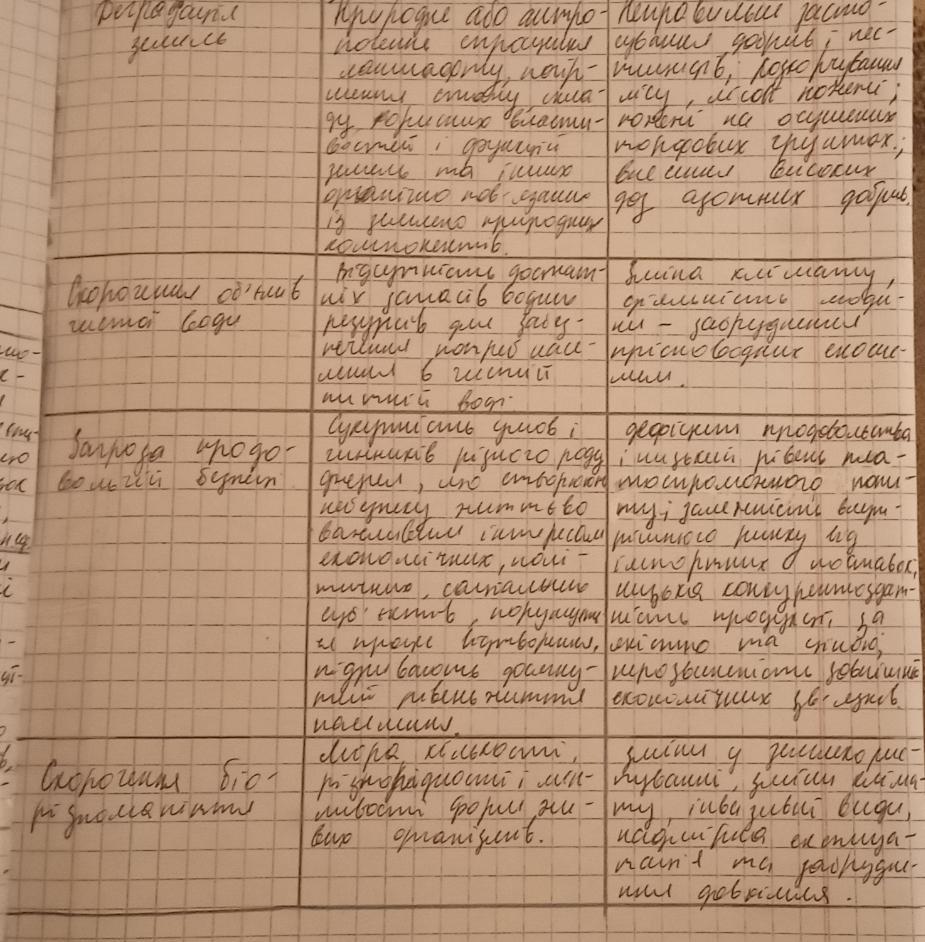 Деградація
земель
Природне або антро-
погенне спрощення
ландшафту, погір-
шення стану, скла-
ду, корисних власти-
востей і функцій
земель та інших
органічно пов'язаних
із землею природних
компонентів.
Неправильне засто-
сування добрив і пес-
тицидів; розкорчування
лісу, лісові пожежі;
пожежі на осушених
торфових грунтах;
внесення високих
доз азотних добрив.
Скорочення об'ємів
чистої води
Відсутність достат-
ніх запасів водних
ресурсів для забез-
печення потреб насе-
лення в чистій
питній воді
Зміна клімату,
діяльність люди-
ни - забруднення
прісноводних екосис-
тем.
Загроза продо-
вольчій безпеці
Сукупність умов і
чинників різного роду
джерел, що створюють
небезпеку життєво
важливим інтересам
економічних, полі-
тичних, соціальних
суб'єктів, порушуючи
процес відтворення,
підривають досягну-
тий рівень життя
населення.
Дефіцит продовольства
і низький рівень пла-
тоспроможного попи-
ту; залежність внутрі-
рішнього ринку від
імпортних поставок;
низька конкурентоздат-
ність продукції за
якістю та ціною;
нерозвиненість зовнішньо
економічних зв'язків.
Скорочення біо-
різноманіття
Міра кількості,
різнорідності і мін-
ливості форм жи-
вих організмів.
Зміни у землекорис-
туванні, зміни кліма-
ту, інвазивні види,
надмірна експлуа-
тація та забрудне-
ння довкілля.